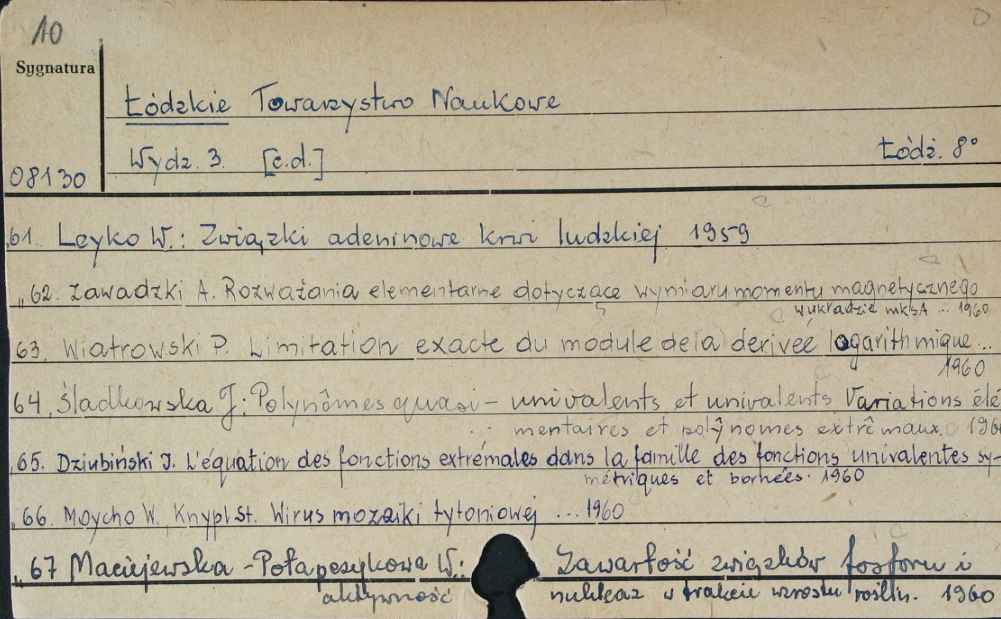 10
Sygnatura
Łódzkie Towarzystwo Naukowe
Wydz. 3. [c.d.] Łódź. 8°
08130
61. Leyko W.: Związki adeninowe krwi ludzkiej 1959
„62. Zawadzki A. Rozważania elementarne dotyczące wymiaru momentu magnetycznego
w układzie mksA ... 1960
63. Wiatrowski P. Limitation exacte du module de la dérivée logarithmique...
1960
64. Śladkowska J: Polynômes quasi - univalents et univalents Variations élé
mentaires et polynomes extrêmaux. 1960
65. Dziubiński I. L'équation des fonctions extrémales dans la famille des fonctions univalentes sy-
métriques et bornées. 1960
„66. Moycho W. Knypl St. Wirus mozaiki tytoniowej ... 1960
„67 Maciejewska-Potapczykowa W.: Zawartość związków fosforu i
aktywność nukleaz w trakcie wzrostu roślin. 1960